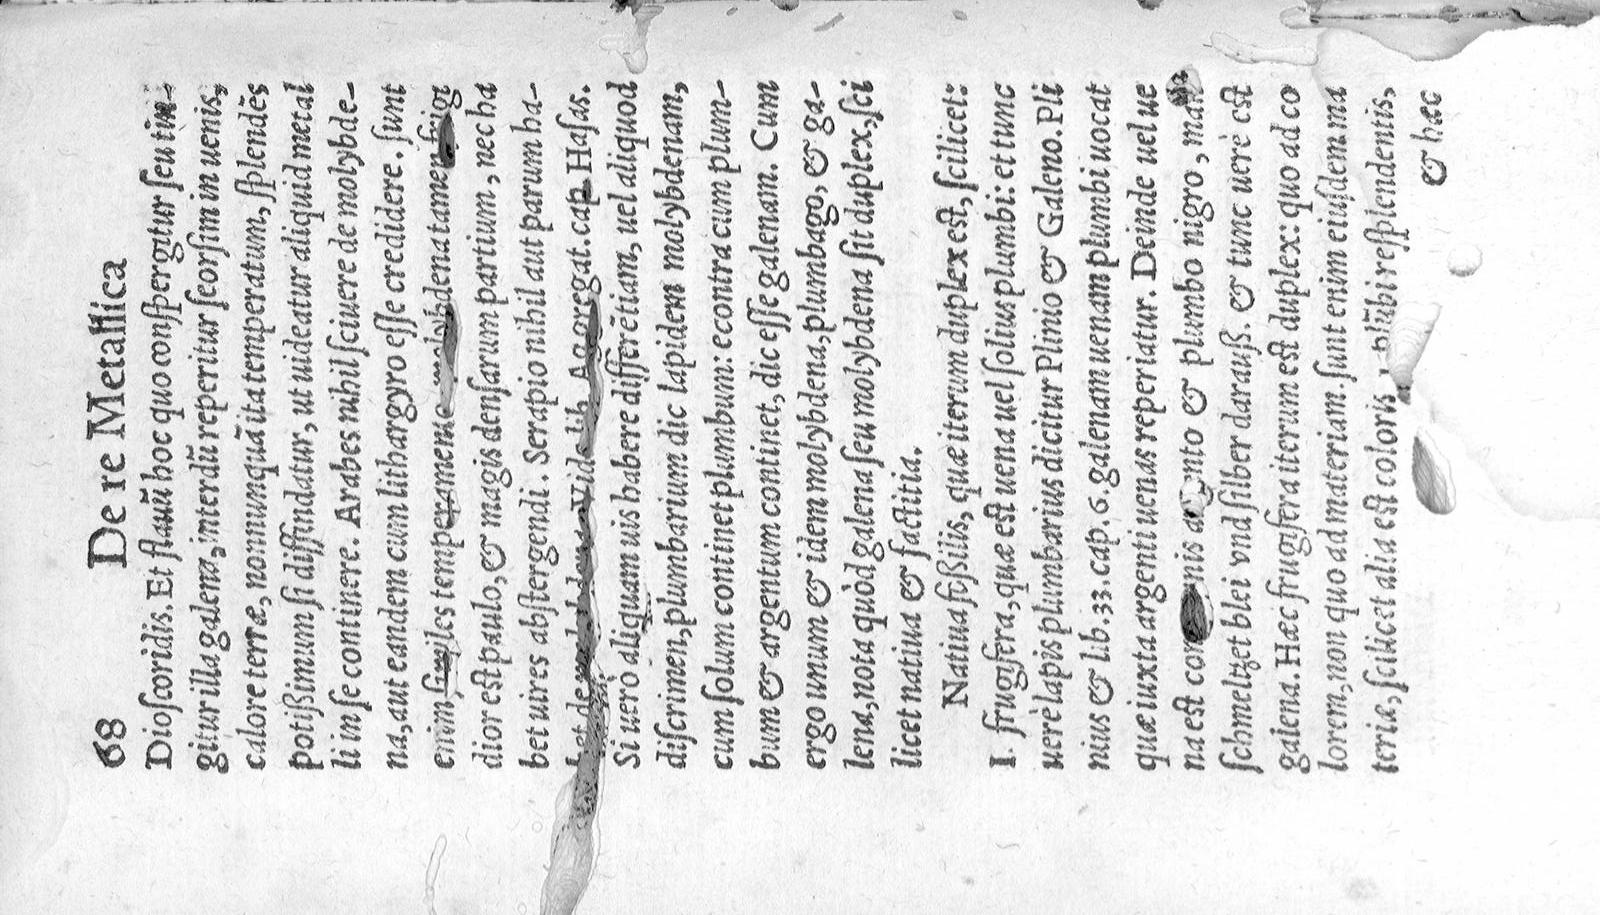 68 De re Metallica
Dioſcoridis. Et flauũ hoc quo conſpergitur ſeu tin-
gitur illa galena, interdũ reperitur ſeorſim in uenis,
calore terræ, nonnunquã ita temperatum, ſplendẽs
potiſsimum ſi diffindatur, ut uideatur aliquid metal
li in ſe continere. Arabes nihil ſciuere de molybde-
na, aut eandem cum lithargyro eſſe credidere. ſunt
enim ſimiles temperamento molybdena tamen frigi
dior eſt paulo, & magis denſarum partium, nec ha
bet uires abſtergendi. Serapio nihil aut parum ha-
bet de Vide lib. Aggregat. cap. Haſas.
Si uerò aliquam uis habere differẽtiam, uel aliquod
diſcrimen, plumbarium dic lapidem molybdenam,
cum ſolum continet plumbum: econtra cum plum-
bum & argentum continet, dic eſſe galenam. Cum
ergo unum & idem molybdena, plumbago, & ga-
lena, nota quòd galena ſeu molybdena ſit duplex, ſci
licet natiua & factitia.
Natiua foſsilis, quæ iterum duplex eſt, ſcilicet:
I. frugifera, quæ eſt uena uel ſolius plumbi: et tunc
uerè lapis plumbarius dicitur Plinio & Galeno. Pli
nius & lib. 33. cap. 6. galenam uenam plumbi uocat
quæ iuxta argenti uenas reperiatur. Deinde uel ue
na eſt communis argento & plumbo nigro, man
ſchmeltzet blei vnd ſilber darauß. & tunc uerè eſt
galena. Hæc frugifera iterum eſt duplex: quo ad co
lorem, non quo ad materiam. ſunt enim eiuſdem ma
teriæ, ſcilicet alia eſt coloris plũbi reſplendentis,
& hæc